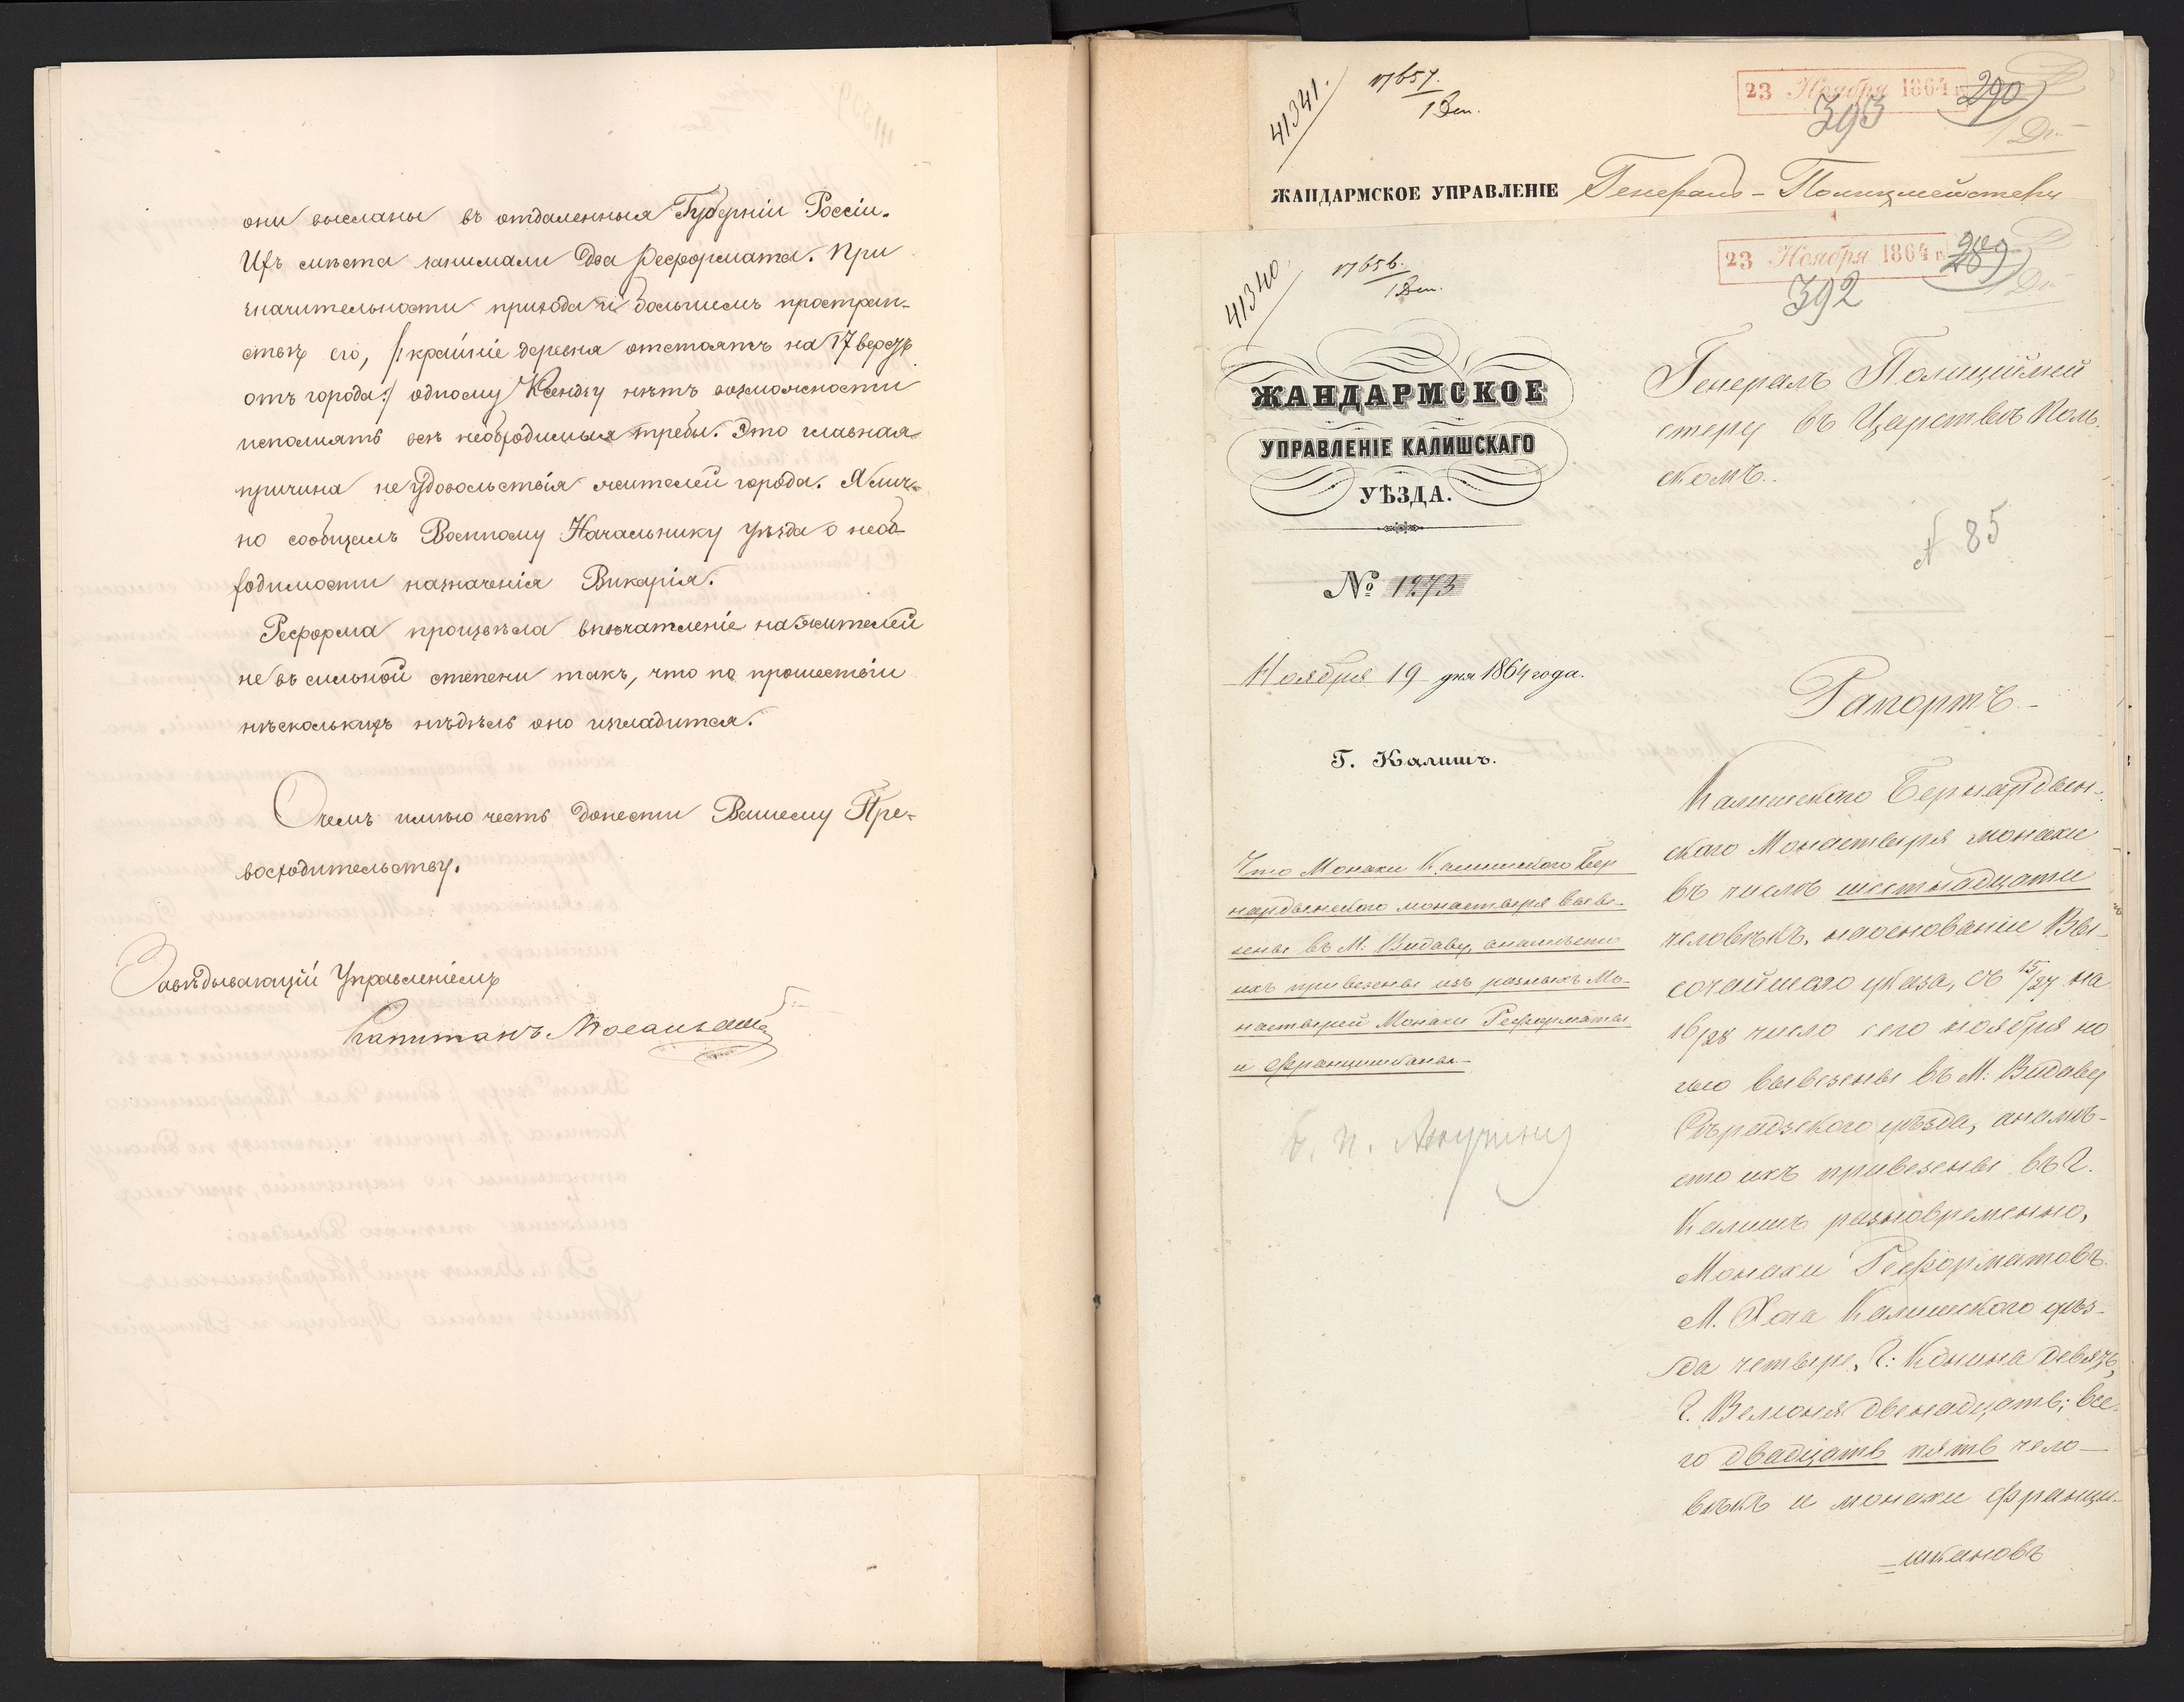 они высланы въ отдаленныя Губерніи Россіи.
Ихъ мѣста занимали два реформата. При
значительности прихода и большемъ простран-
ствѣ его, /: крайніе деревня отстоятъ на 17 верстъ
отъ города :/ одному Ксендзу нѣтъ возможности
исполнять всѣ необходимыя требы. Это главная
причина неудовольствія жителей города. Я лич-
но сообщилъ Военному Начальнику уѣзда о необ-
ходимости назначенія Викарія.
Реформа произвела впечатленіе на жителей
не въ сильной степени такъ, что по прошествіи
нѣсколькихъ нѣдѣль оно изгладится.
О чемъ имѣю честь донести Вашему Пре-
восходительству.
Завѣдывающій Управленіемъ
Капитанъ
41341.
17657.
1 Деп.
23 Ноября 1864 г.
290
393
ЖАНДАРМСКОЕ УПРАВЛЕНІЕ Генералъ-Полицмейстеру
41340.
17656.
1 Деп.
23 Ноября 1864 г.
289
392
ЖАНДАРМСКОЕ
УПРАВЛЕНІЕ КАЛИШСКАГО
УѢЗДА.
№ 1273
Ноября 19 дня 1864 года.
Г. Калишъ.
Что Монахи Калишскаго Бер
нардынскаго монастыря выве-
зены въ М: Видаву, анамѣсто
ихъ привезены изъ разныхъ Мо-
настырей Монахи Реформаты
и Францишканы.
Генералъ Полиціймей
стеру въ Царствѣ Поль-
скомъ.
№ 85
Рапортъ.
Калишскаго Бернардын-
скаго Монастыря монахи
въ числѣ шестнадцати
человѣкъ, наоснованіи Вы-
сочайшаго указа, съ 15/27 на
16/28 число сего ноября но
чью вывезены въ М: Видаву
Сѣрадзскаго уѣзда, анамѣ-
сто ихъ привезены въ г.
Калишъ разновременно,
Монахи Реформатовъ
М. Хоча Калишскаго уѣз-
да четыре, г: Конина девять,
г. Велюня двенадцать; все-
го двадцать пять чело-
вѣкъ и монахи Францы-
шкановъ